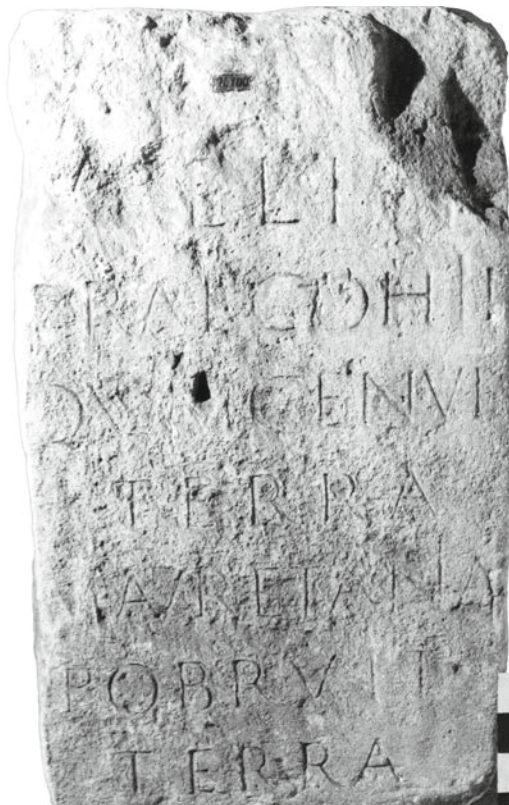 ELI
COH II
QVEM GENVI
TERRA
MAVRETANIA
P OBRVIT
TERRA